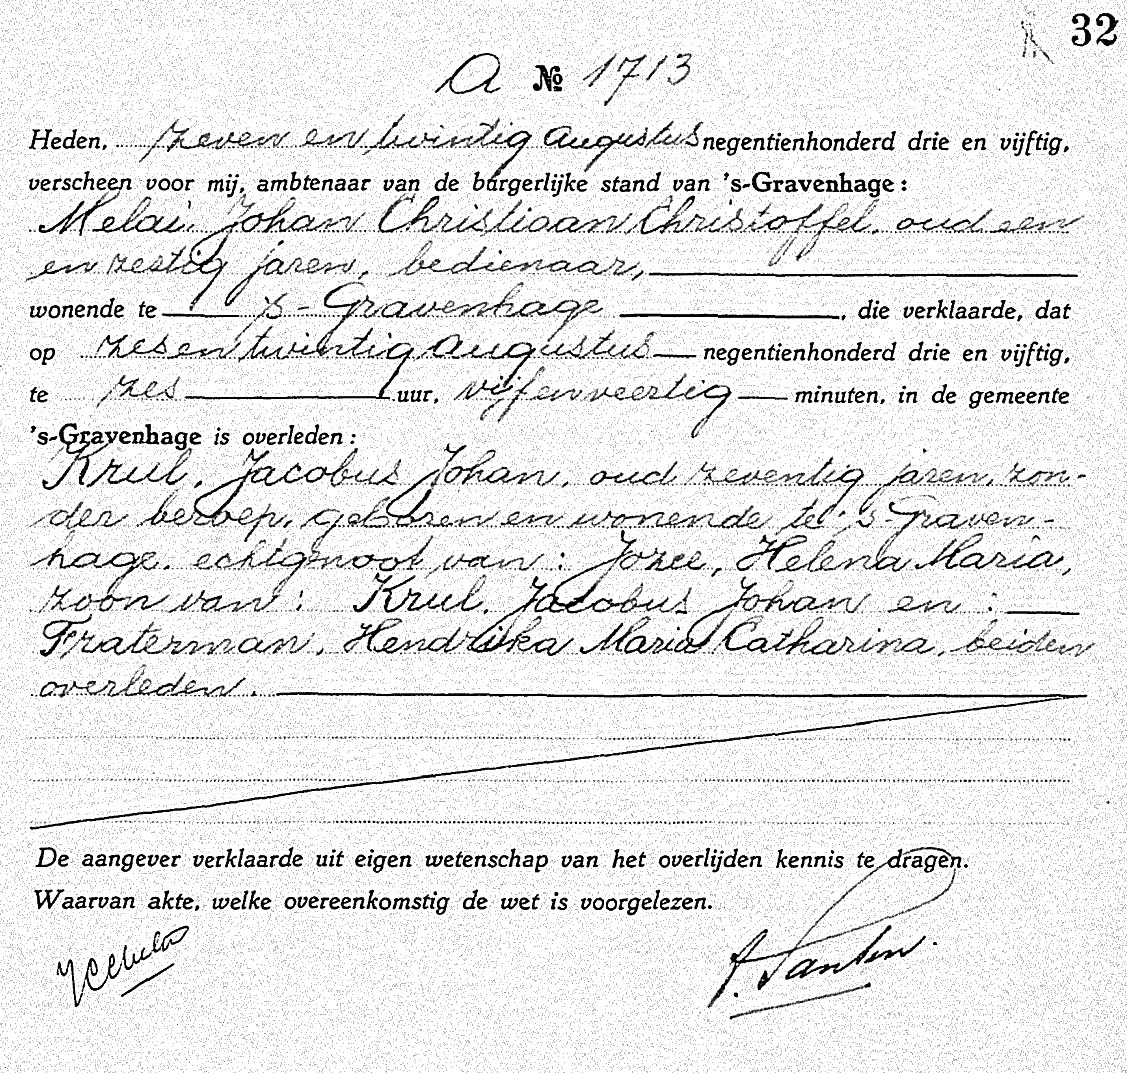 32
A № 1713
Heden, zeven en twintig Augustus negentienhonderd drie en vijftig,
verscheen voor mij, ambtenaar van de burgerlijke stand van 's-Gravenhage:
Melai, Johan Christiaan Christoffel, oud een
en zestig jaren, bedienaar,
wonende te 's-Gravenhage, die verklaarde, dat
op zes en twintig Augustus negentienhonderd drie en vijftig,
te zes uur, vijf en veertig minuten, in de gemeente
's-Gravenhage is overleden:
Krul, Jacobus Johan, oud zeventig jaren, zon-
der beroep, geboren en wonende te 's-Graven-
hage, echtgenoot van: Jozee, Helena Maria,
zoon van: Krul, Jacobus Johan en:
Fraterman, Hendrika Maria Catharina, beiden
overleden.
De aangever verklaarde uit eigen wetenschap van het overlijden kennis te dragen.
Waarvan akte, welke overeenkomstig de wet is voorgelezen.